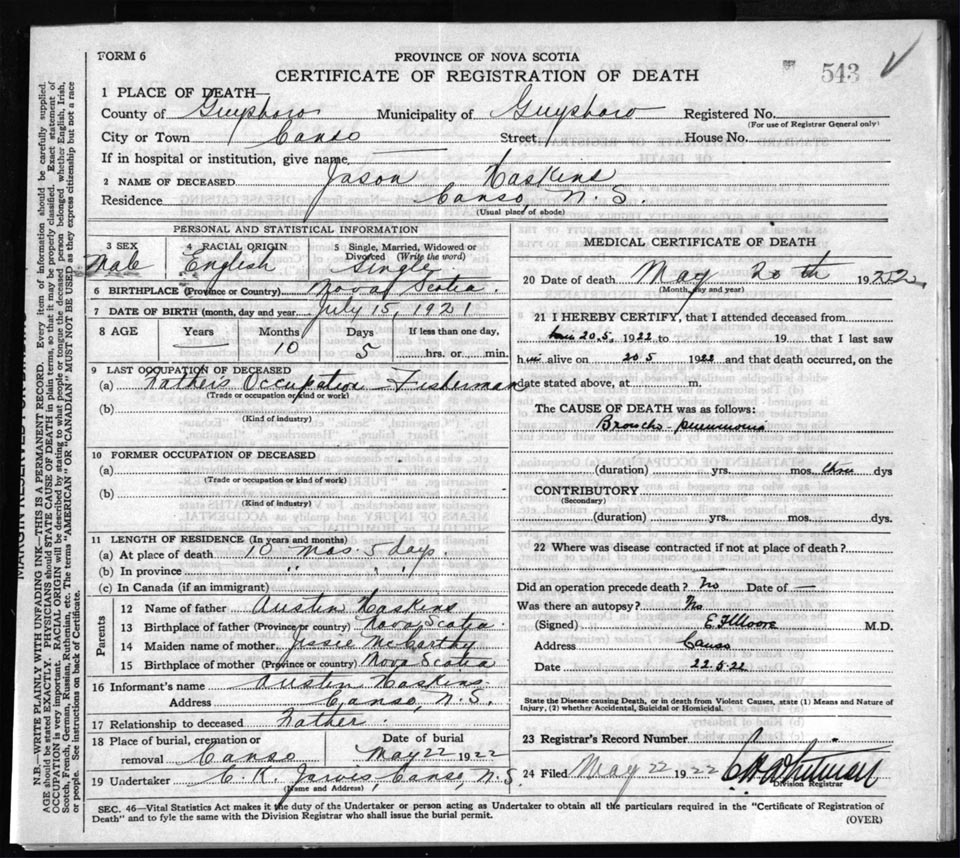 FORM 6
PROVINCE OF NOVA SCOTIA
543
CERTIFICATE OF REGISTRATION OF DEATH
1 PLACE OF DEATH—
County of Guysboro Municipality of Guysboro Registered No.
(For use of Registrar General only)
City or Town Canso Street House No.
If in hospital or institution, give name
2 NAME OF DECEASED Jason Haskins
Residence Canso, N. S.
(Usual place of abode)
PERSONAL AND STATISTICAL INFORMATION
3 SEX 4 RACIAL ORIGIN 5 Single, Married, Widowed or Divorced (Write the word)
Male English Single
6 BIRTHPLACE (Province or Country) Nova Scotia.
7 DATE OF BIRTH (month, day and year) July 15, 1921
8 AGE Years Months Days If less than one day,
— 10 5 hrs. or min.
9 LAST OCCUPATION OF DECEASED
(a) Father's Occupation – Fisherman
(Trade or occupation or kind or work)
(b)
(Kind of industry)
10 FORMER OCCUPATION OF DECEASED
(a)
(Trade or occupation or kind of work)
(b)
(Kind of industry)
11 LENGTH OF RESIDENCE (In years and months)
(a) At place of death 10 mos. 5 days.
(b) In province " " "
(c) In Canada (if an immigrant)
Parents
12 Name of father Austin Haskins
13 Birthplace of father (Province or country) Nova Scotia.
14 Maiden name of mother Jessie McCarthy
15 Birthplace of mother (Province or country) Nova Scotia
16 Informant's name Austin Haskins.
Address Canso, N. S.
17 Relationship to deceased Father.
18 Place of burial, cremation or removal Canso Date of burial May 22 1922
19 Undertaker C. K. Jarvis, Canso, N. S.
(Name and Address)
MEDICAL CERTIFICATE OF DEATH
20 Date of death May 20th 1922
(Month, day and year)
21 I HEREBY CERTIFY, that I attended deceased from
20.5. 1922 to 19 that I last saw
him alive on 20 5 1922 and that death occurred, on the
date stated above, at m.
The CAUSE OF DEATH was as follows:
Broncho-pneumonia
(duration) yrs. mos. dys
CONTRIBUTORY
(Secondary)
(duration) yrs. mos. dys.
22 Where was disease contracted if not at place of death?
Did an operation precede death? No Date of —
Was there an autopsy? No
(Signed) E F Moore M.D.
Address Canso
Date 22.5.22
State the Disease causing Death, or in death from Violent Causes, state (1) Means and Nature of Injury, (2) whether Accidental, Suicidal or Homicidal.
23 Registrar's Record Number
24 Filed May 22 1922
Division Registrar
SEC. 46—Vital Statistics Act makes it the duty of the Undertaker or person acting as Undertaker to obtain all the particulars required in the "Certificate of Registration of
Death" and to fyle the same with the Division Registrar who shall issue the burial permit.
(OVER)
N.B.—WRITE PLAINLY WITH UNFADING INK—THIS IS A PERMANENT RECORD. Every item of information should be carefully supplied.
AGE should be stated EXACTLY. PHYSICIANS should STATE CAUSE OF DEATH in plain terms, so that it may be properly classified. Exact statement of
OCCUPATION is very important. RACIAL ORIGIN will be described by stating to what people or tongue the deceased person belonged whether English, Irish,
Scotch, French, German, Russian, Ruthenian, etc. The terms "AMERICAN" OR "CANADIAN" MUST NOT BE USED as they express citizenship but not a race
or people. See instructions on back of Certificate.